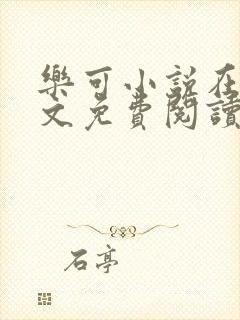 樂可小說在
文免費閱讀
石亭